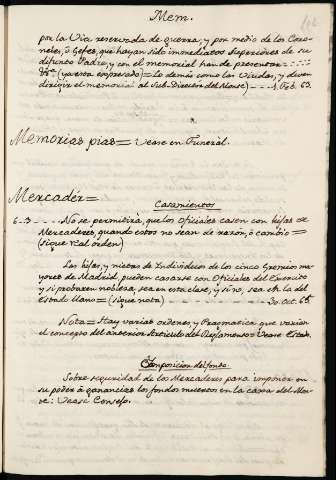 Mem.
por la Via reservada de guerra, y por medio de los Coro-
neles, ó Gefes, que hayan sido immediatos Superiores de su
difunto Padre, y con el memorial han de presentar
(ya está expresado) = Lo demás como las Viudas, y deven
dirigir el memorial al Sub-Director del Monte) - - 1. Feb. 63.
Memorias pias = Vease en Funeral.
Mercader =
Casamientos
6-3 - - - No se permitirá, que los oficiales casen con hijas de
Mercaderes, quando estos no sean de razon, ó cambio =
(sigue real órden)
Las hijas, y nietas de Individuos de los cinco Gremios ma-
yores de Madrid, pueden casarse con Oficiales del Exercito
y si probaren nobleza, sea en esta clase, y si no, sea en la del
Estado llano = (sigue nota) - - - 30. oct. 64.
Nota = Hay varias ordenes, y Pragmatica que varian
el concepto del anterior Articulo del Reglamento = Vease Estad.
Composicion del fondo
Sobre seguridad de los Mercaderes para imponer en
su poder á ganancias los fondos muertos en la caxa del Mon-
te: Vease Consejo.